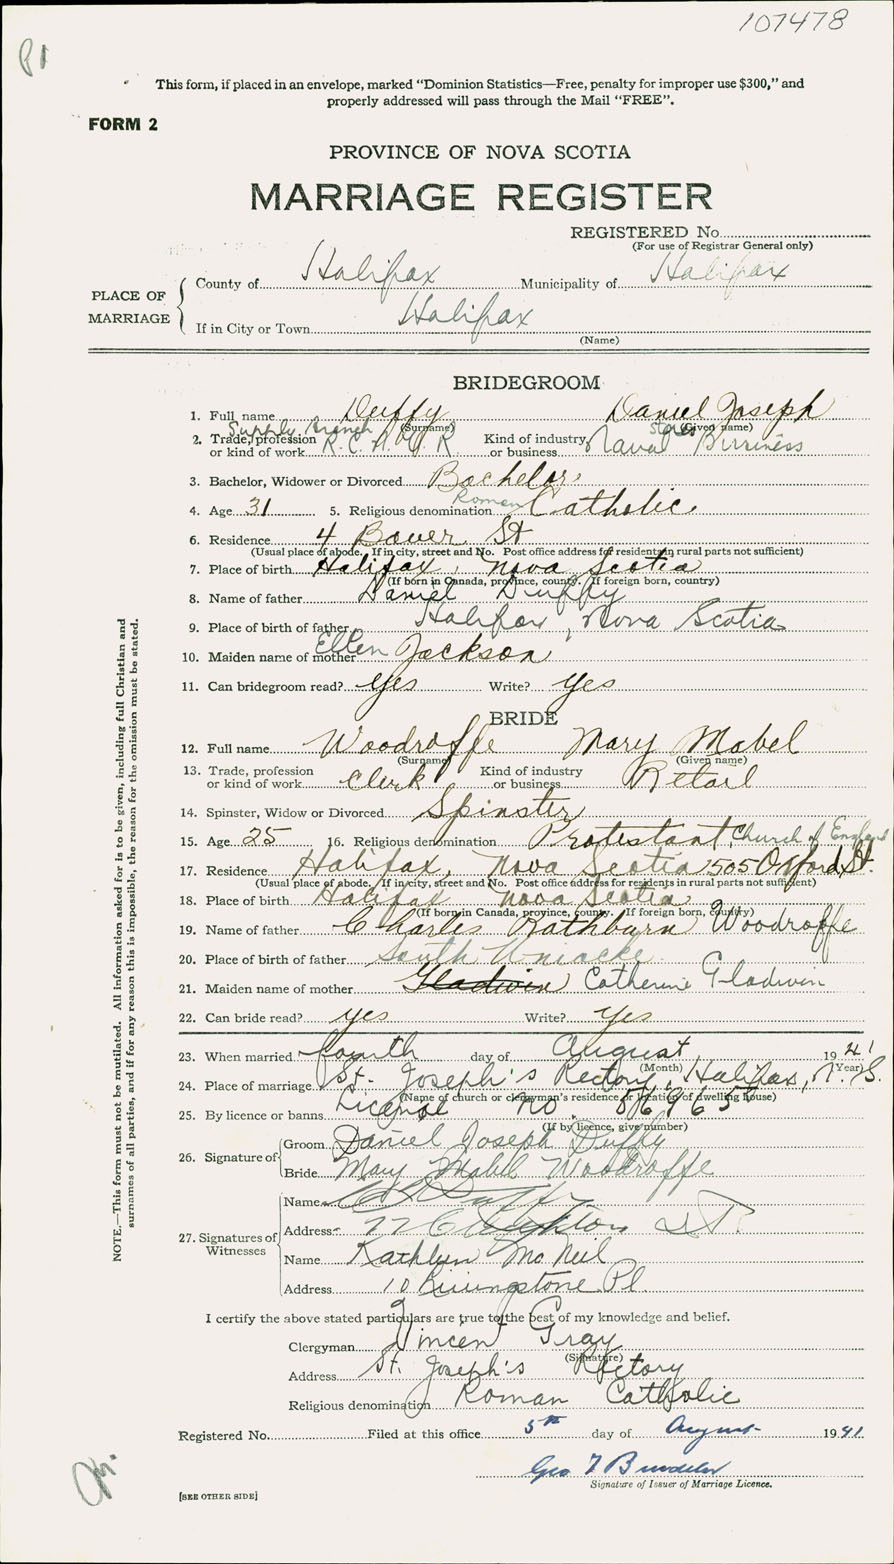 107478
P1
This form, if placed in an envelope, marked "Dominion Statistics—Free, penalty for improper use $300," and
properly addressed will pass through the Mail "FREE".
FORM 2
PROVINCE OF NOVA SCOTIA
MARRIAGE REGISTER
REGISTERED No.
(For use of Registrar General only)
PLACE OF MARRIAGE
County of Halifax Municipality of Halifax
If in City or Town Halifax
(Name)
BRIDEGROOM
1. Full name Duffy Daniel Joseph
(Surname) (Given name)
Supply Branch Stores
2. Trade, profession or kind of work R.C.N.V.R. Kind of industry or business Naval Business
3. Bachelor, Widower or Divorced Bachelor
4. Age 31 5. Religious denomination Roman Catholic
6. Residence 4 Bauer St
(Usual place of abode. If in city, street and No. Post office address for residents in rural parts not sufficient)
7. Place of birth Halifax, Nova Scotia
(If born in Canada, province, county. If foreign born, country)
8. Name of father Daniel Duffy
9. Place of birth of father Halifax, Nova Scotia
10. Maiden name of mother Ellen Jackson
11. Can bridegroom read? yes Write? yes
BRIDE
12. Full name Woodroffe Mary Mabel
(Surname) (Given name)
13. Trade, profession or kind of work Clerk Kind of industry or business Retail
14. Spinster, Widow or Divorced Spinster
15. Age 25 16. Religious denomination Protestant, Church of England
17. Residence Halifax, Nova Scotia 505 Oxford St.
(Usual place of abode. If in city, street and No. Post office address for residents in rural parts not sufficient)
18. Place of birth Halifax Nova Scotia
(If born in Canada, province, county. If foreign born, country)
19. Name of father Charles Rathburn Woodroffe
20. Place of birth of father South Uniacke
21. Maiden name of mother Gladwin Catherine Gladwin
22. Can bride read? yes Write? yes
23. When married fourth day of August 1941
(Month) (Year)
24. Place of marriage St. Joseph's Rectory, Halifax, N.S.
(Name of church or clergyman's residence or location of dwelling house)
25. By licence or banns License no.
(If by licence, give number)
26. Signature of Groom Daniel Joseph Duffy
Bride Mary Mabel Woodroffe
27. Signatures of Witnesses
Name Duffy
Address 77 Creighton St.
Name Kathleen McNeil
Address 10 Livingstone Pl
I certify the above stated particulars are true to the best of my knowledge and belief.
Clergyman Vincent Gray
(Signature)
Address St. Joseph's Rectory
Religious denomination Roman Catholic
Registered No. Filed at this office 5th day of August 1941
Geo
Signature of Issuer of Marriage Licence.
[SEE OTHER SIDE]
NOTE.—This form must not be mutilated. All information asked for is to be given, including full Christian and
surnames of all parties, and if for any reason this is impossible, the reason for the omission must be stated.